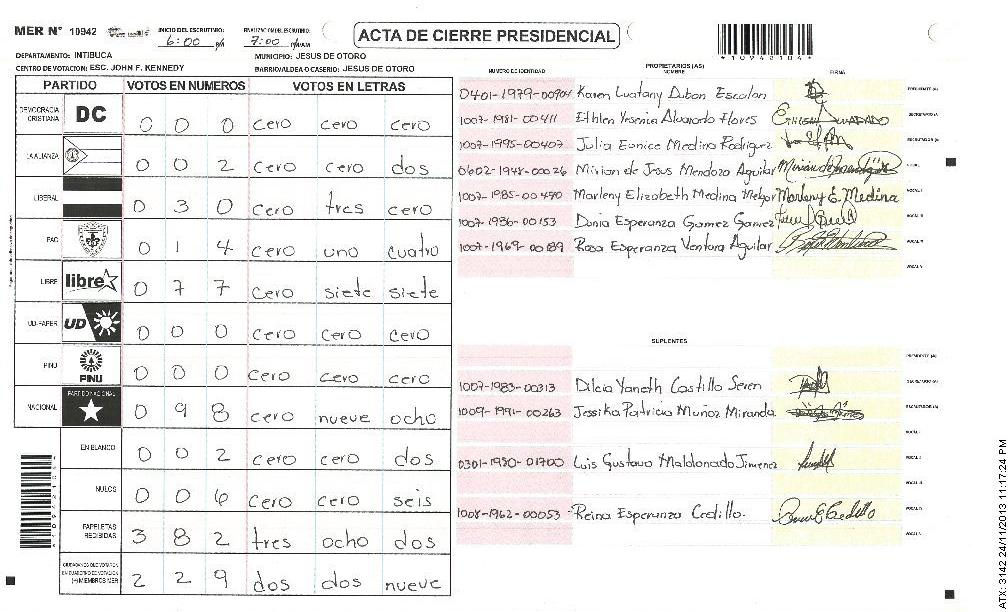 MER N° 10942 INICIO DEL ESCRUTINIO: 6:00 FINALIZACION DEL ESCRUTINIO: 7:00 ACTA DE CIERRE PRESIDENCIAL
*10942104*
DEPARTAMENTO: INTIBUCA MUNICIPIO: JESUS DE OTORO
CENTRO DE VOTACION: ESC. JOHN F. KENNEDY BARRIO/ALDEA O CASERIO: JESUS DE OTORO
PARTIDO VOTOS EN NUMEROS VOTOS EN LETRAS
DEMOCRACIA CRISTIANA DC 0 0 0 cero cero cero
LA ALIANZA 0 0 2 cero cero dos
LIBERAL 0 3 0 cero tres cero
PAC 0 1 4 cero uno cuatro
LIBRE libre 0 7 7 cero siete siete
UD-FAPER UD 0 0 0 cero cero cero
PINU PINU 0 0 0 cero cero cero
NACIONAL PARTIDO NACIONAL 0 9 8 cero nueve ocho
EN BLANCO 0 0 2 cero cero dos
NULOS 0 0 6 cero cero seis
PAPELETAS RECIBIDAS 3 8 2 tres ocho dos
CIUDADANOS QUE VOTARON EN CUADERNO DE VOTACION (+) MIEMBROS MER 2 2 9 dos dos nueve
PROPIETARIOS (AS)
NUMERO DE IDENTIDAD NOMBRE FIRMA
0401-1979-00904 Karen Luatany Dubon Escolan PRESIDENTE (A)
1007-1981-00411 Ethlen Yesenia Alvarado Flores SECRETARIO (A)
1007-1995-00407 Julia Eunice Medina Rodriguez ESCRUTADOR (A)
0602-1948-00026 Mirian de Jesus Mendoza Aguilar VOCAL I
1007-1985-00490 Marleny Elizabeth Medina Melgar Marleny E. Medina VOCAL II
1007-1986-00153 Dunia Esperanza Gomez Gomez VOCAL III
1007-1969-00189 Rosa Esperanza Ventura Aguilar VOCAL IV
VOCAL V
SUPLENTES
PRESIDENTE (A)
1007-1983-00313 Dilcia Yaneth Castillo Seren SECRETARIO (A)
1009-1991-00263 Jessika Patricia Muñoz Miranda ESCRUTADOR (A)
VOCAL I
0301-1950-01700 Luis Gustavo Maldonado Jimenez VOCAL II
VOCAL III
1008-1962-00053 Reina Esperanza Cedillo. VOCAL IV
VOCAL V
ATX: 3142 24/11/2013 11:17:24 PM